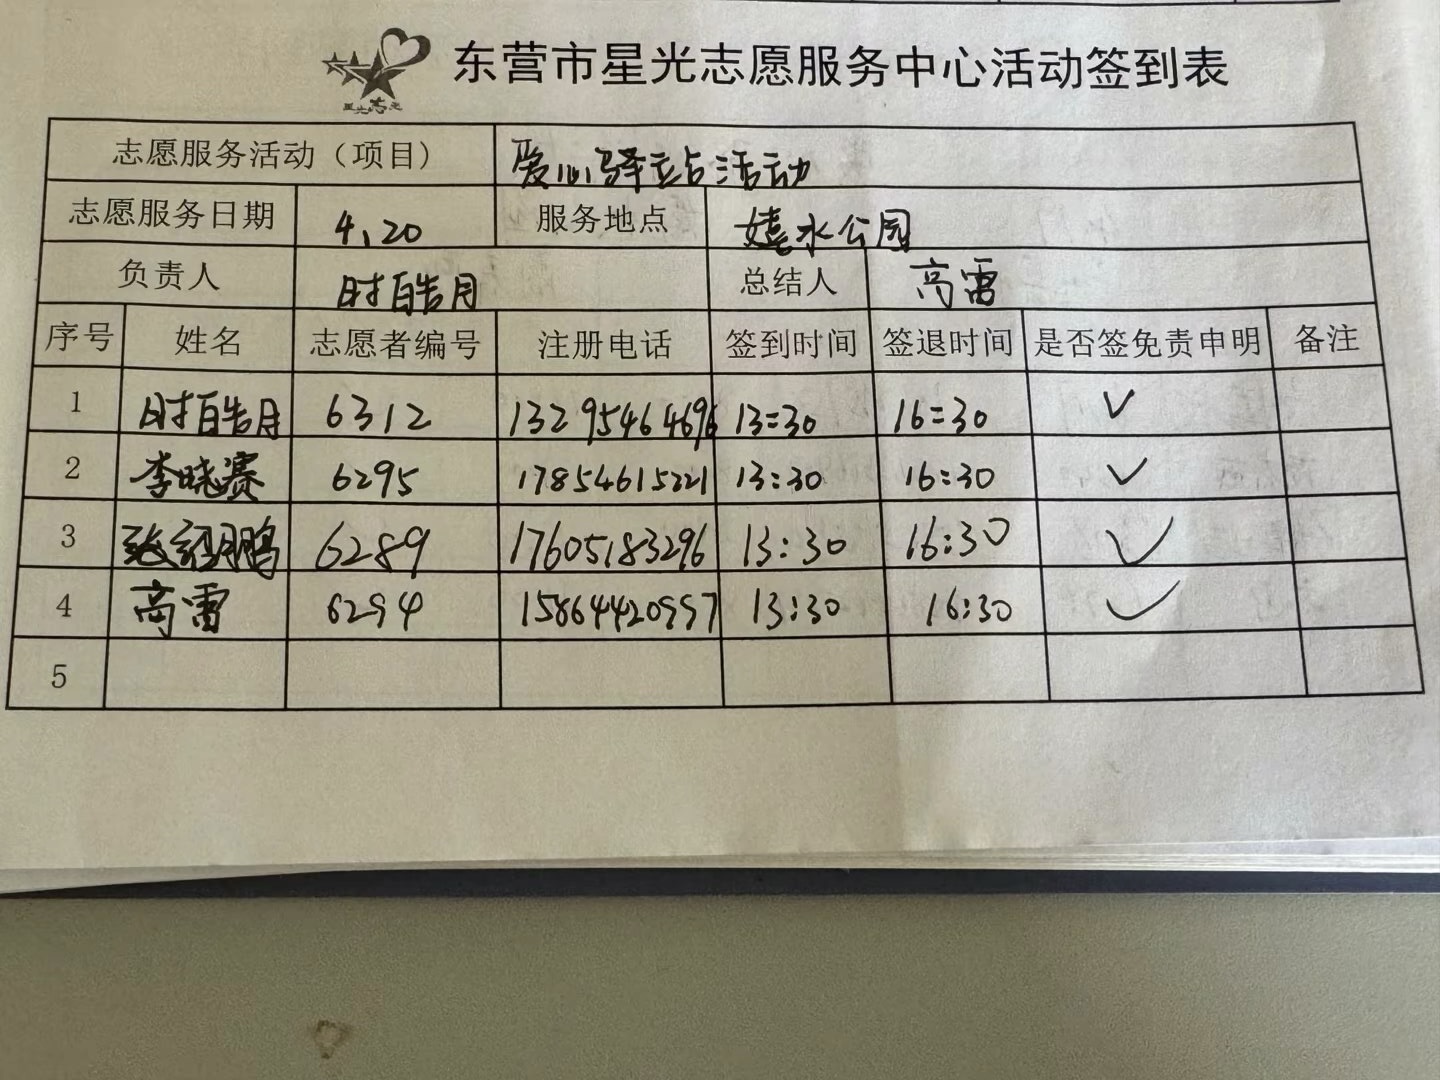 星光志愿
东营市星光志愿服务中心活动签到表
志愿服务活动（项目） 爱心驿站活动
志愿服务日期 4.20 服务地点 嬉水公园
负责人 时皓月 总结人 高雷
序号 姓名 志愿者编号 注册电话 签到时间 签退时间 是否签免责申明 备注
1 时皓月 6312 13295464696 13:30 16:30 ✓
2 李晓赛 6295 17854615221 13:30 16:30 ✓
3 张绍鹏 6289 17605183296 13:30 16:30 ✓
4 高雷 6294 15864420997 13:30 16:30 ✓
5